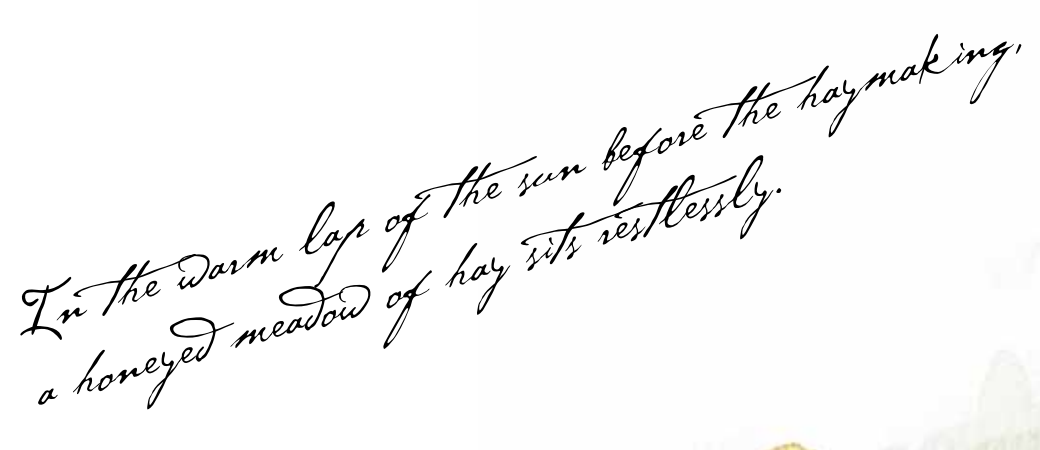 In the warm lap of the sun before the haymaking,
a honeyed meadow of hay sits restlessly.